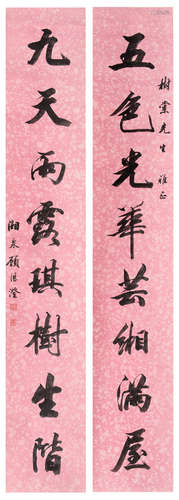 樹棠先生雅正
五色光華芸緗滿屋
九天雨露琪樹生階
湘泉顧淇澄